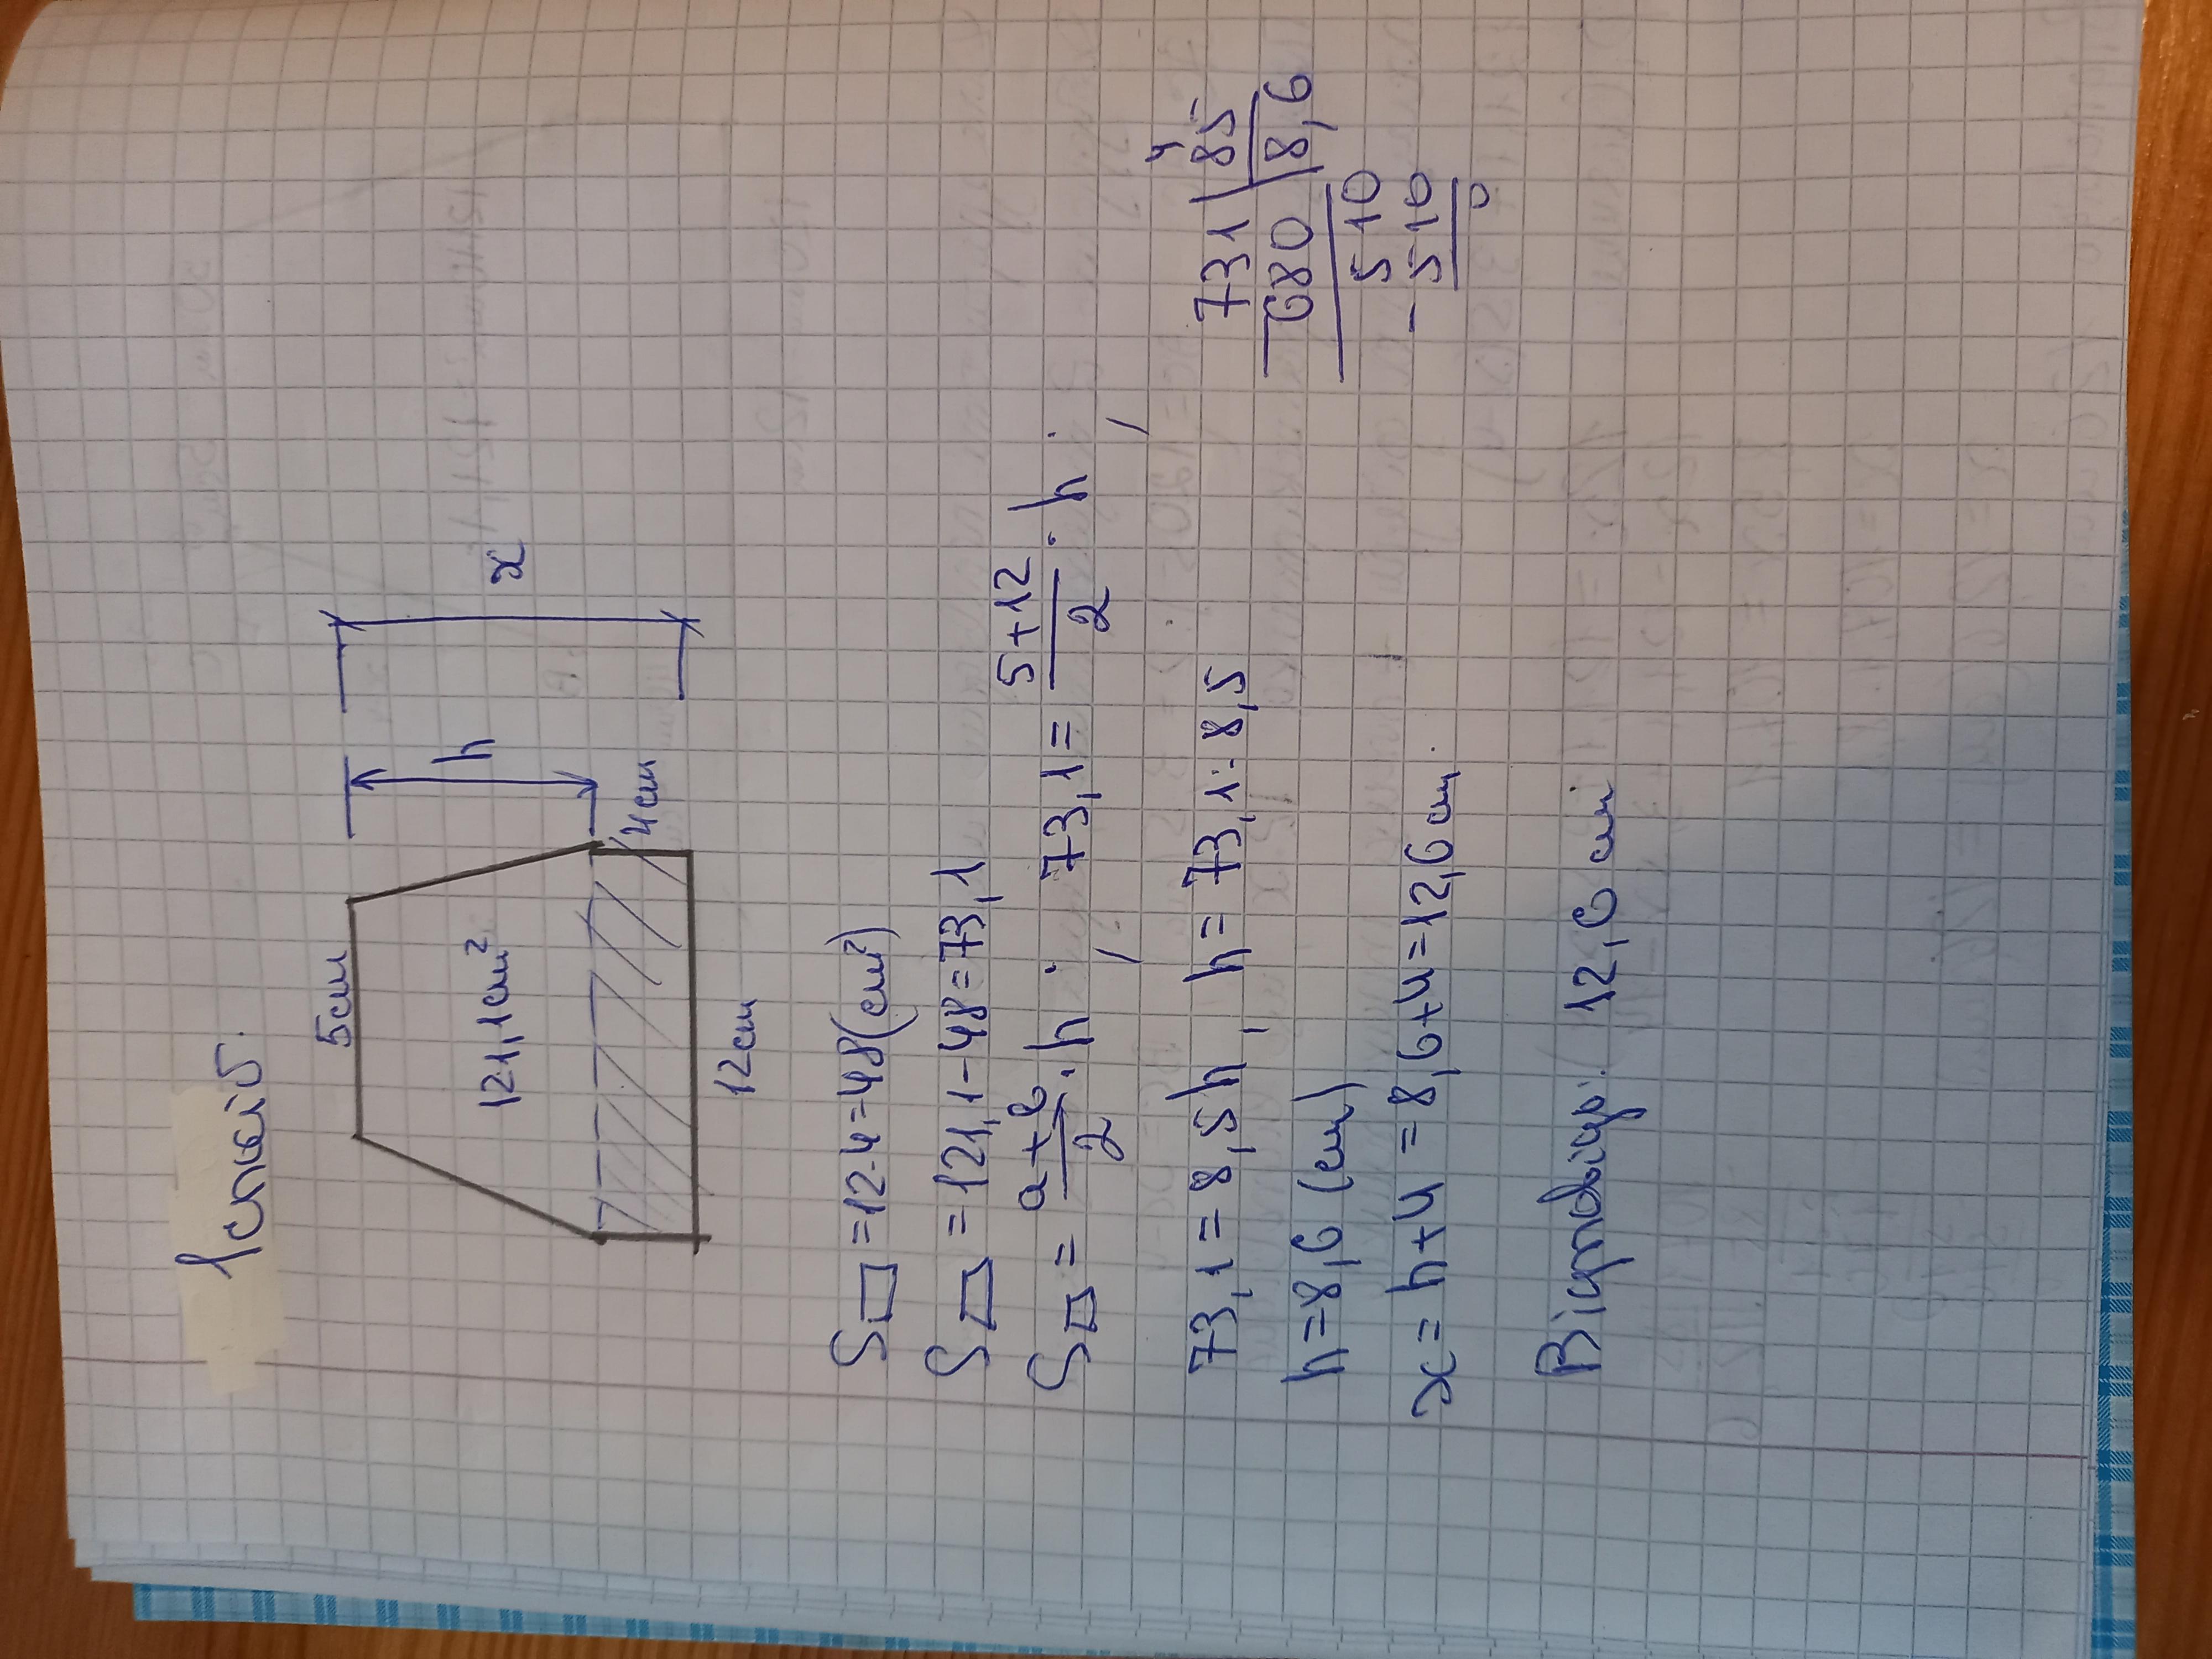 І спосіб.
5см
h
x
121,1см²
4см
12см
S▭ = 12·4 = 48(см²)
S⏢ = 121,1 - 48 = 73,1
S⏢ = a+b/2 · h ; 73,1 = 5+12/2 · h ;
73,1 = 8,5h , h = 73,1 : 8,5
h = 8,6 (см)
x = h+4 = 8,6+4 = 12,6 см.
Відповідь: 12,6 см
4
731 | 85
680 | 8,6
510
- 510
0